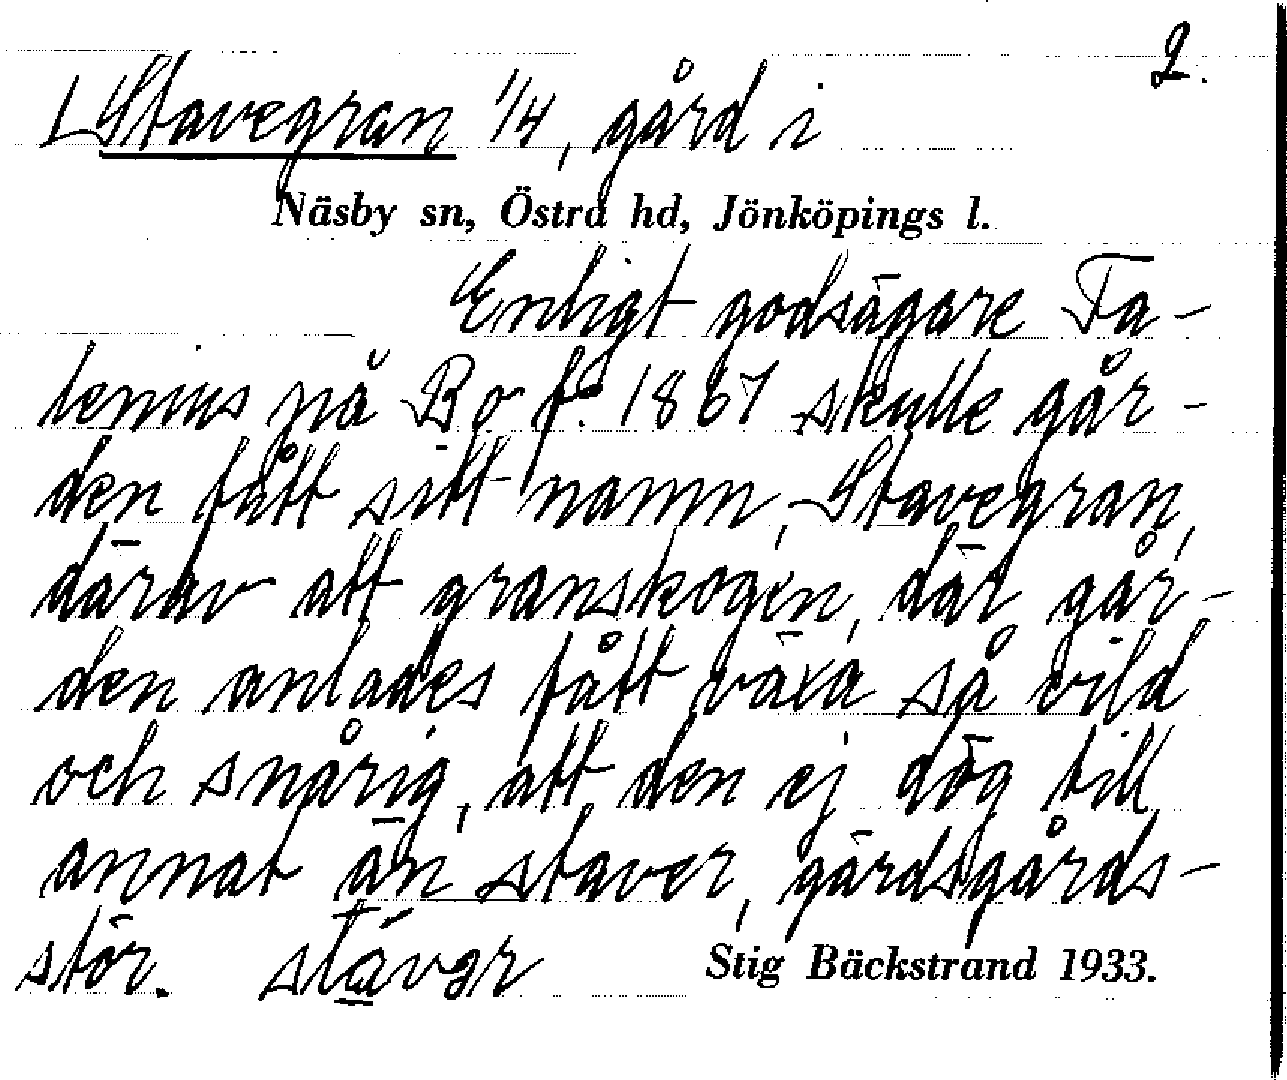 2.
L Stavegran 1/4, gård i
Näsby sn, Östra hd, Jönköpings l.
Enligt godsägare Fa-
lenius på Bo f. 1867 skulle går-
den fått sitt namn, Stavegran,
därav att granskogen, där går-
den anlades fått växa så vild
och snårig, att den ej dög till
annat än staver, gärdsgårds-
stör. stāvgr
Stig Bäckstrand 1933.